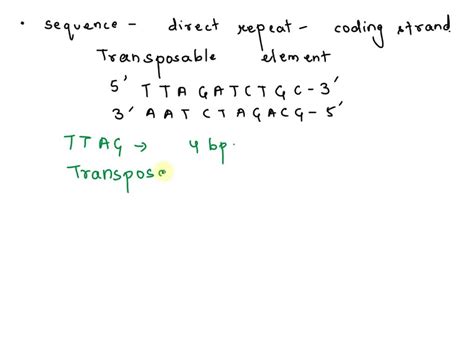 • sequence - direct repeat - coding strand
Transposable element
5' TTAGATCTGC-3'
3' AATCTAGACG-5'
TTAG → 4 bp.
Transpos